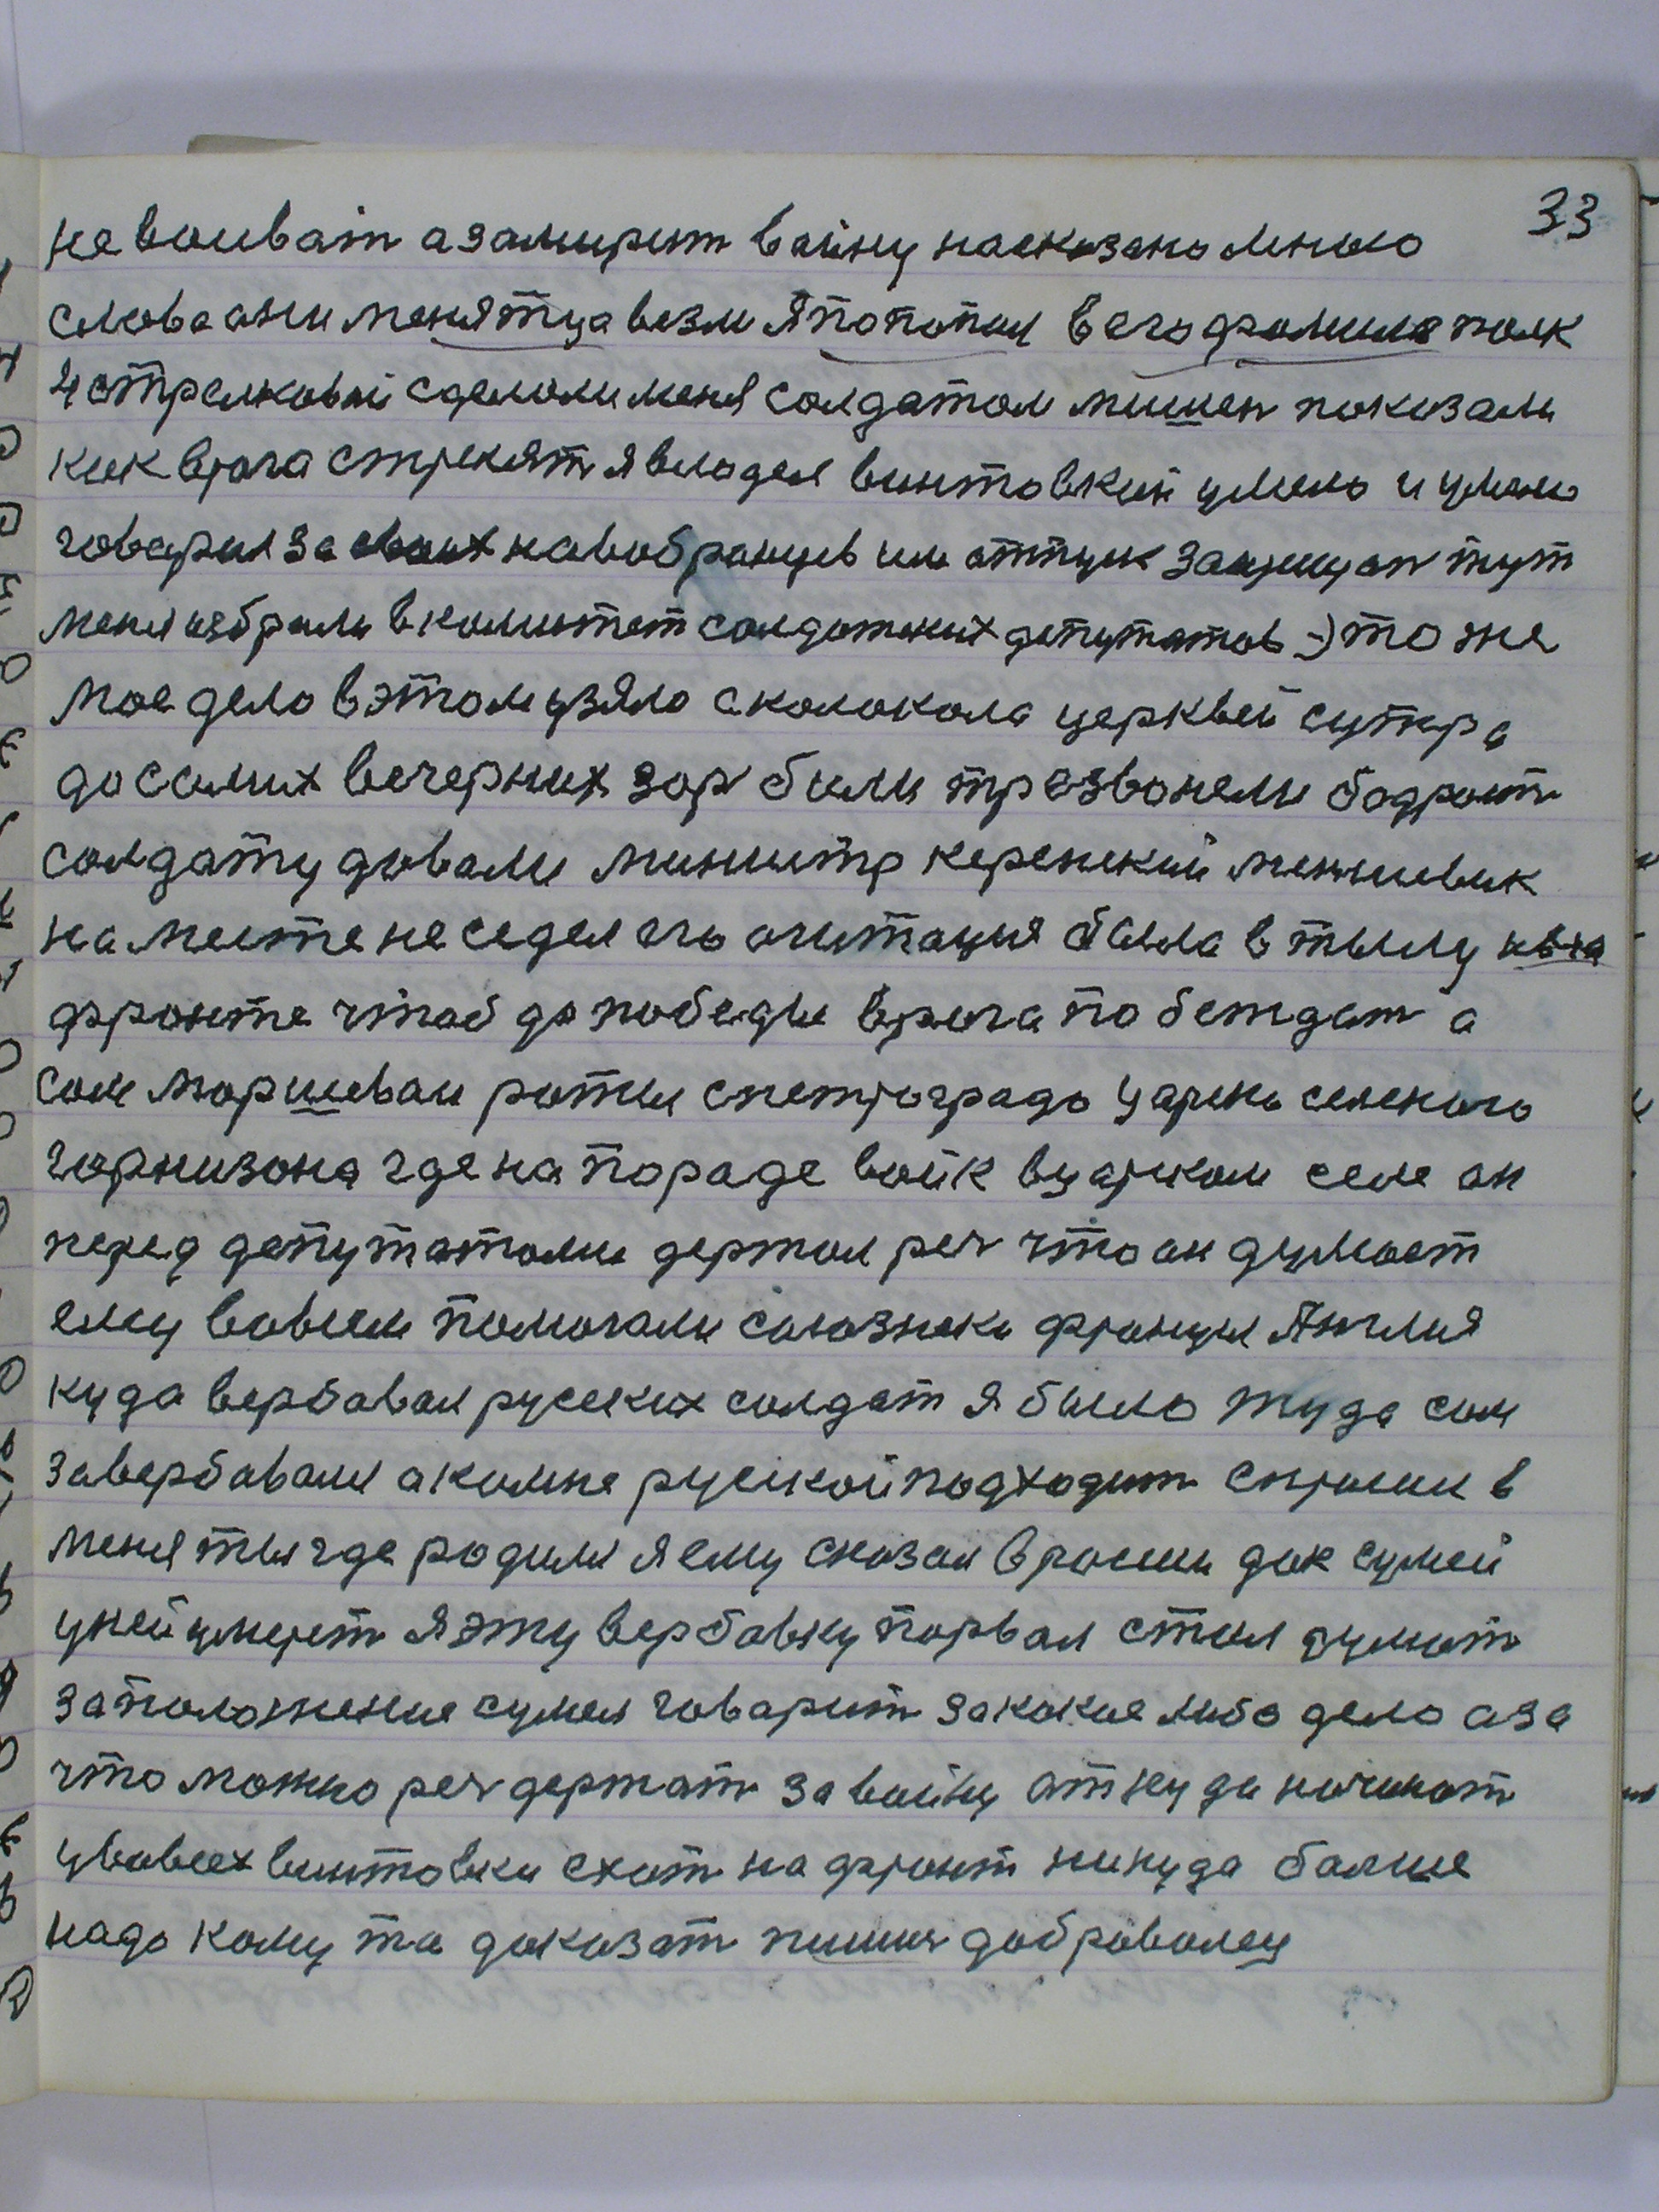 33
не воиват а замирит вайну насказано многа
слова ани менятца везли Я попопал в его фамилие полк
4 стрелковай сделоли меня солдатом мишен показали
как врага стрелят я владел винтовкий умело и умело
говарил за сваих навобранцев им отпуск защищал тут
меня избрали в комитет солдатских депутатов то же
мое дело в этом узяло с колокола церквей сутра
до самих вечерних зор били трезвонели бодрост
солдату довали минитр керенский меншевик
на месте не седел его агитация была в тылу на
фронте чтоб до победы врага побеждат а
сам маршеваи ротыи с петрограда царско селского
гарнизона где на пораде войск в царском селе ан
перед депутатами держал реч что ан думает
ему вовсем помогали саюзнеки франция Англия
куда вербавал русских солдат я было туда сам
завербавалы а комне руской подходит спросил в
меня ты где родили я ему сказал в росии дак сумей
у ней умерет я эту вербавку порвал стал думат
за положение сумел говарит за какое либо дело а за
что можно реч держат за вайну аткуда начинат
у вовсех винтовки ехат на фронт никуда балше
надо кому та доказат пишис добраволец